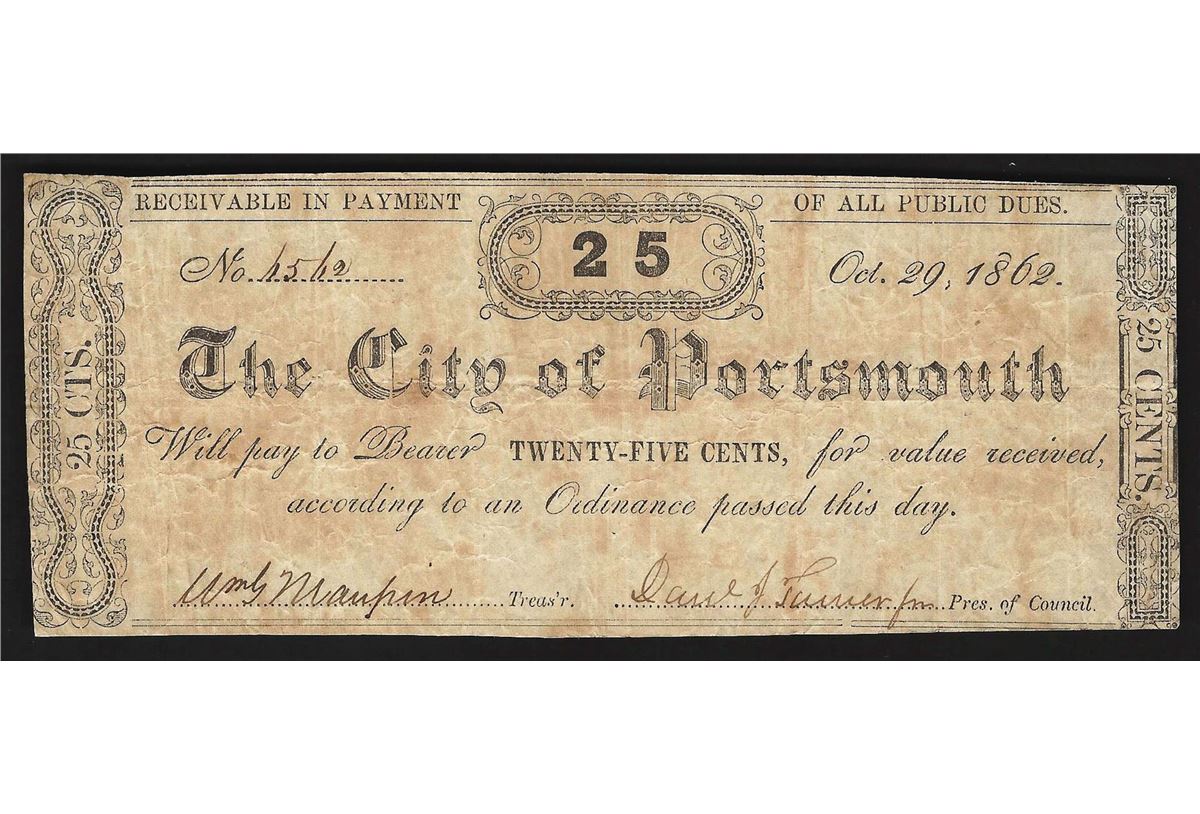 RECEIVABLE IN PAYMENT OF ALL PUBLIC DUES.
25
No. 4542 Oct. 29, 1862.
The City of Portsmouth
Will pay to Bearer TWENTY-FIVE CENTS, for value received,
according to an Ordinance passed this day.
Wm G Maupin Treas'r. Danl J Turner jr Pres. of Council.
25 CTS.
25 CENTS.